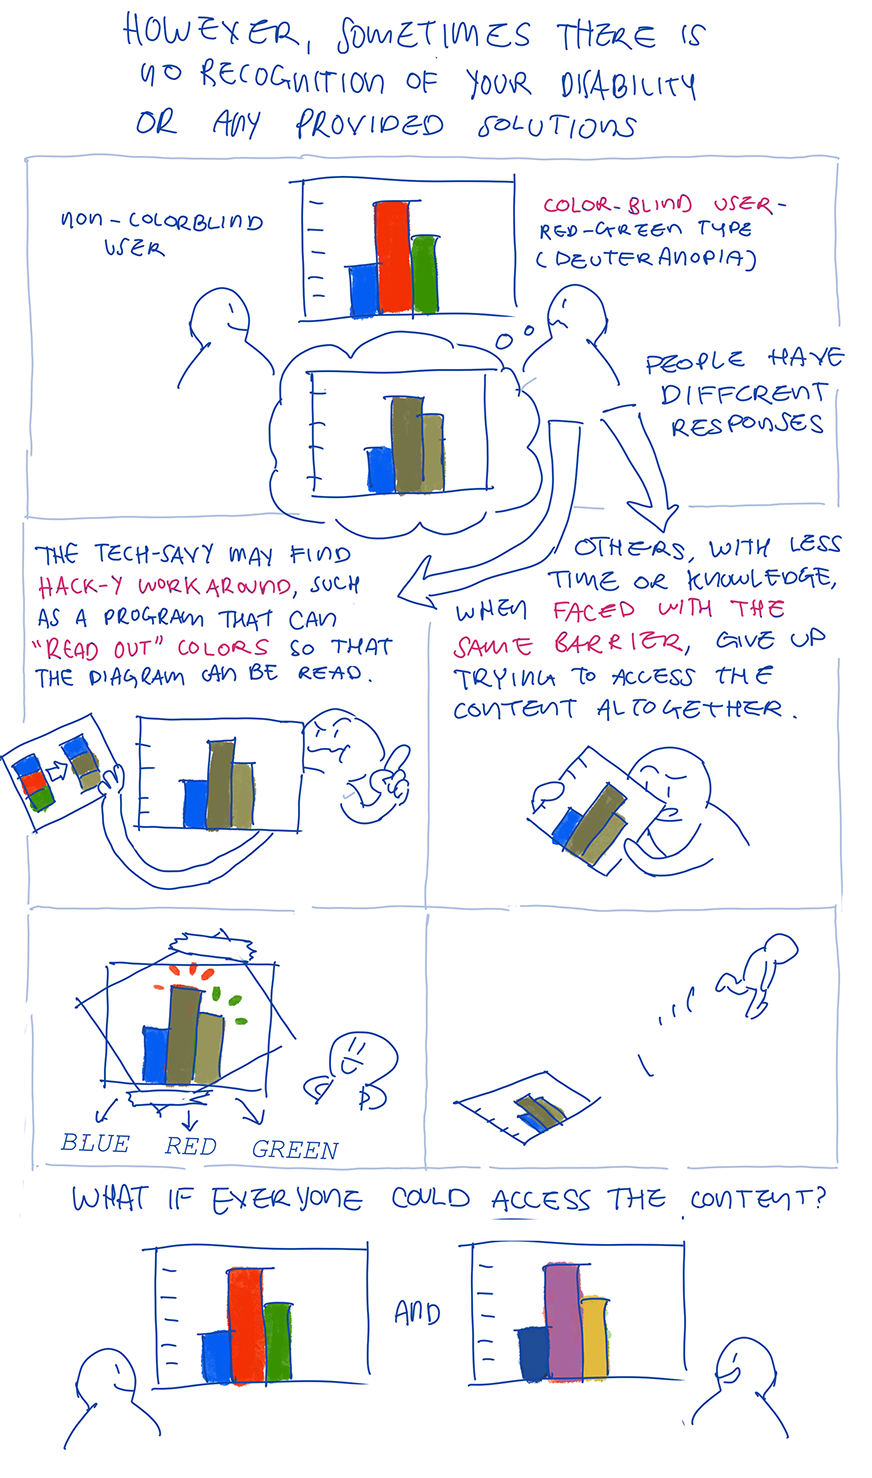 HOWEVER, SOMETIMES THERE IS
NO RECOGNITION OF YOUR DISABILITY
OR ANY PROVIDED SOLUTIONS
NON-COLORBLIND
USER
COLOR-BLIND USER-
RED-GREEN TYPE
(DEUTERANOPIA)
PEOPLE HAVE
DIFFERENT
RESPONSES
THE TECH-SAVY MAY FIND
HACK-Y WORKAROUND, SUCH
AS A PROGRAM THAT CAN
"READ OUT" COLORS SO THAT
THE DIAGRAM CAN BE READ.
OTHERS, WITH LESS
TIME OR KNOWLEDGE,
WHEN FACED WITH THE
SAME BARRIER, GIVE UP
TRYING TO ACCESS THE
CONTENT ALTOGETHER.
BLUE RED GREEN
WHAT IF EVERYONE COULD ACCESS THE CONTENT?
AND